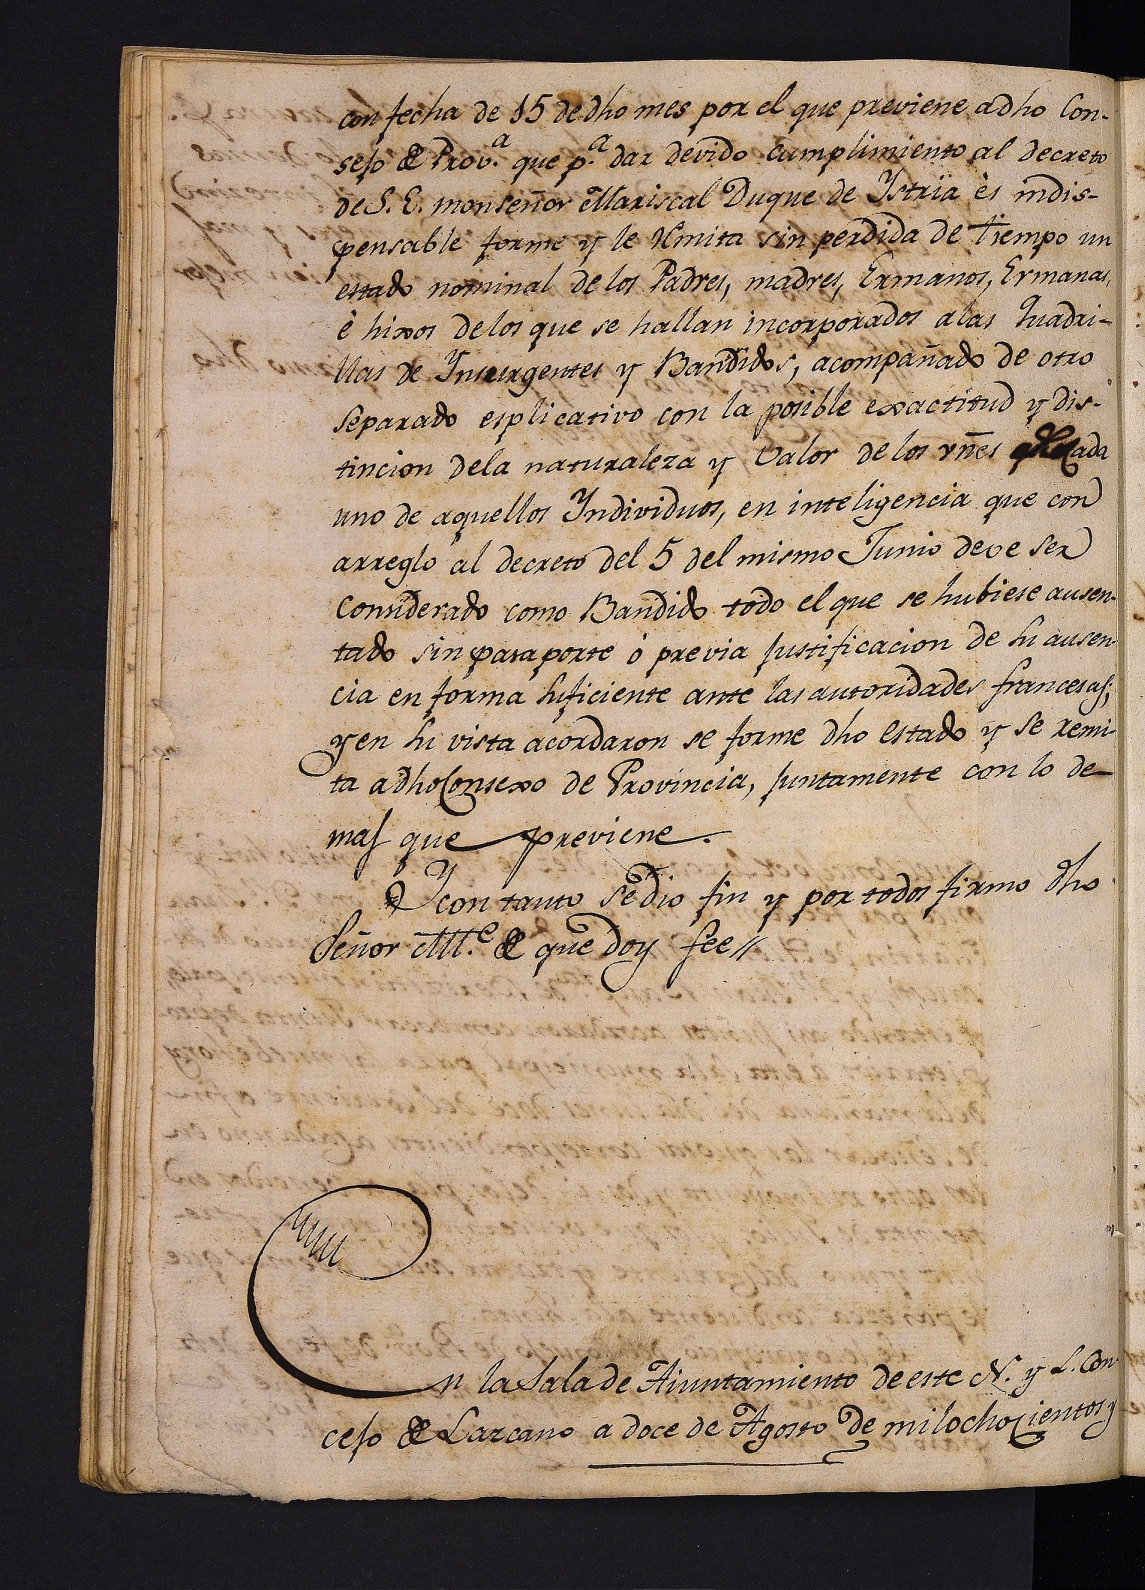 con fecha de 15 de dho mes por el que previene a dho Con-
sejo de Prov.ª que p.ª dar devido cumplimiento al decreto
de S. E. monseñor Mariscal Duque de Ystria ès indis-
pensable forme y le Rmita sin perdida de tiempo un
estado nominal de los Padres, madres, Ermanos, Ermanas,
è hixos de los que se hallan incorporados a las Quadri-
llas de Ynsurgentes y Bandidos, acompañado de otro
separado esplicativo con la posible exactitud y dis-
tincion de la naturaleza y valor de los vñes de cada
uno de aquellos Yndividuos, en inteligencia que con
arreglo al decreto del 5 del mismo Junio deve ser
considerado como Bandido todo el que se hubiese ausen-
tado sin pasaporte ó previa justificacion de su ausen-
cia en forma suficiente ante las autoridades francesas;
y en su vista acordaron se forme dho estado y se remi-
ta a dho Consexo de Provincia, juntamente con lo de
mas que previene.
Y con tanto se dio fin y por todos firmo dho
Señor Alc.e de que doy fee//
En la Sala de Aiuntamiento de este N. y L. Con
cejo de Lazcano a doce de Agosto de mil ochocientos y